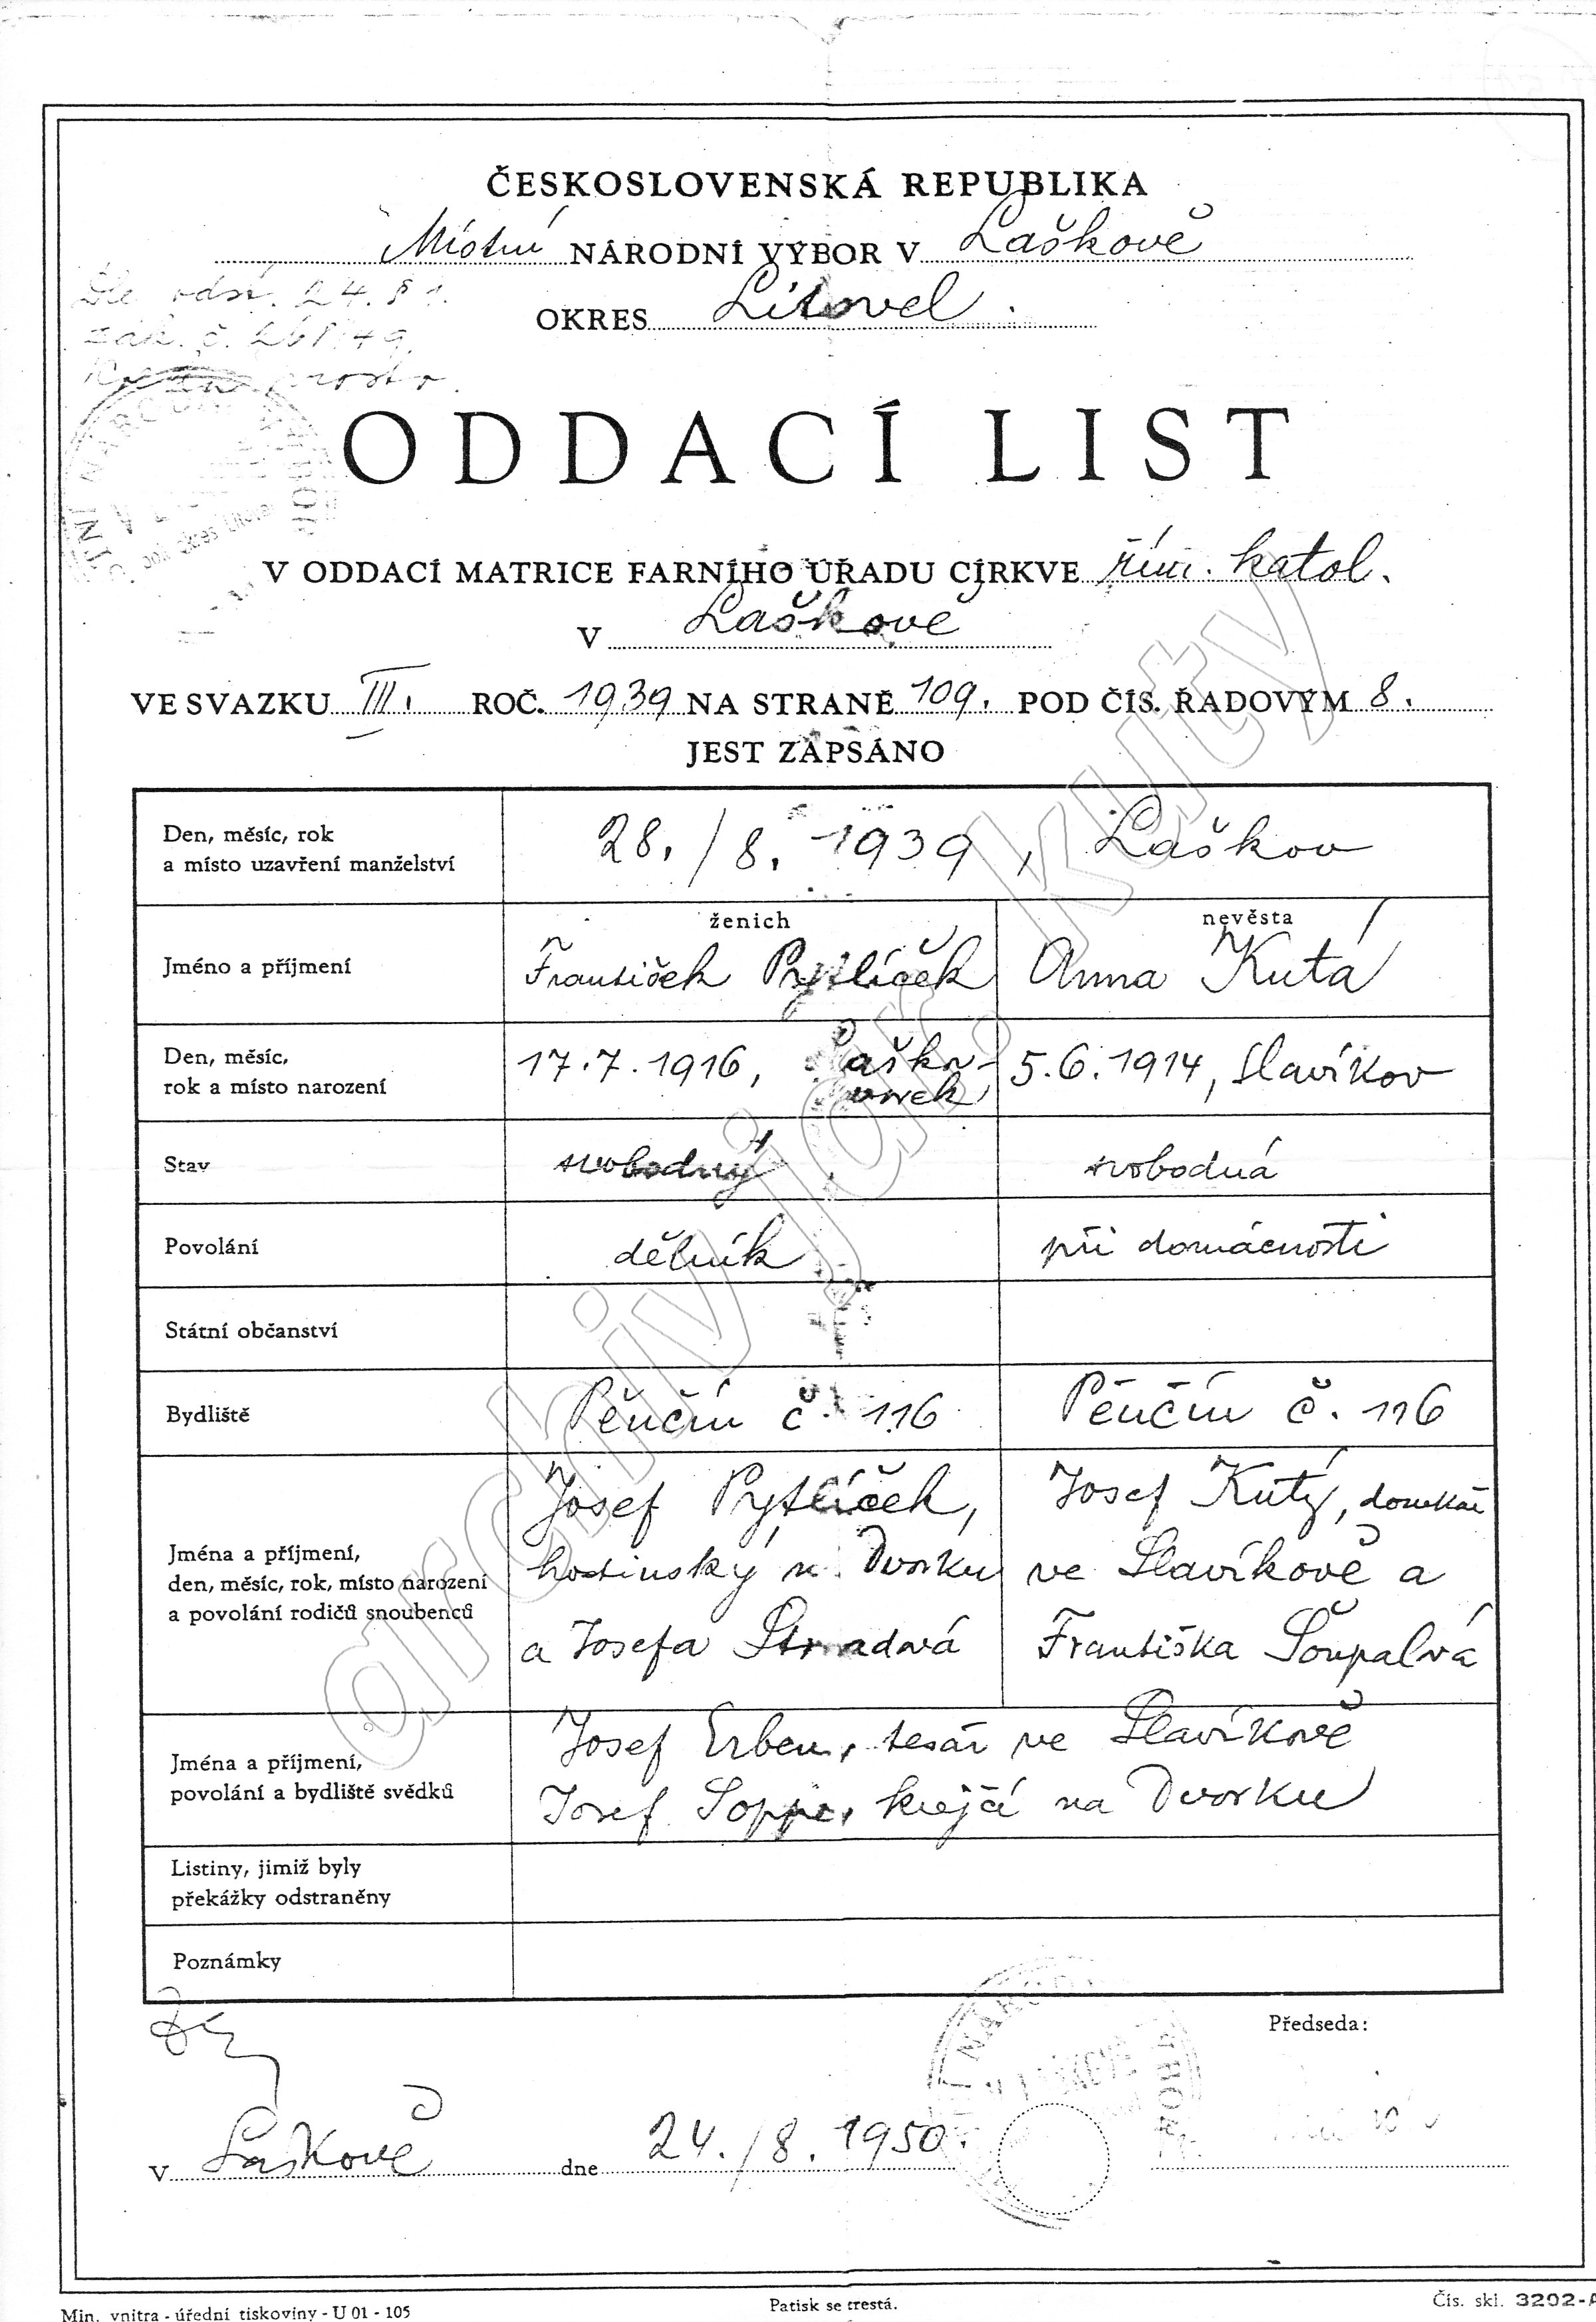 ČESKOSLOVENSKÁ REPUBLIKA
Místní NÁRODNÍ VÝBOR V Laškově
Dle odst. 24. § 1.
zák. č.
prosto.
OKRES Litovel.
ODDACÍ LIST
V ODDACÍ MATRICE FARNÍHO ÚŘADU CÍRKVE řím. katol.
V Laškově
VE SVAZKU III. ROČ. 1939 NA STRANĚ 109. POD ČÍS. ŘADOVÝM 8.
JEST ZAPSÁNO
Den, měsíc, rok
a místo uzavření manželství
28./8. 1939, Laškov
ženich
nevěsta
Jméno a příjmení
František Pytlíček
Anna Kutá
Den, měsíc,
rok a místo narození
17.7.1916,
5.6.1914, Slavíkov
Stav
svobodný
svobodná
Povolání
dělník
při domácnosti
Státní občanství
Bydliště
Pěnčín č. 116
Pěnčín č. 116
Jména a příjmení,
den, měsíc, rok, místo narození
a povolání rodičů snoubenců
Josef Pytlíček,
hostinský n Dvorku
a Josefa Strnadová
Josef Kutý, domkář
ve Slavíkově a
Františka Šoupalová
Jména a příjmení,
povolání a bydliště svědků
Josef Erben, tesář ve Slavíkově
Josef krejčí na Dvorku
Listiny, jimiž byly
překážky odstraněny
Poznámky
Předseda:
v Laškově dne 24./8. 1950.
Min. vnitra - úřední tiskoviny - U 01 - 105
Patisk se trestá.
Čís. skl. 3202-A
archiv jar. kutý